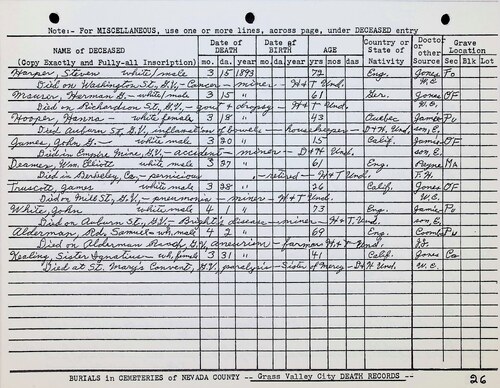 Note:- For MISCELLANEOUS, use one or more lines, across page, under DECEASED entry
NAME OF DECEASED
(Copy Exactly and Fully-all Inscription)
Date of DEATH
mo. da. year
Date of BIRTH
mo. da. year
AGE
yrs mos da.
Country or State of Nativity
Doctor or other Source
Grave Location
Sec Blk Lot
Harper, Steven white/male 3 15 1893 72 Eng. Jones Po
Died on Washington St., G.V., - Cancer - miner - H+T Und. W.E.
Maurer, Herman G. - white/male 3 15 " 61 Ger. Jones OF
Died on Richardson St., G.V. - gout + dropsy - H+T Und. W.E.
Hooper, Hanna - white female 3 18 " 43 Quebec Jamie- Pu
Died Auburn St., G.V., inflamation of bowels - housekeeper - D+H Und. son, E.
James, John G. - white male 3 20 " 15- Calif. Jamie- OF
Died in Empire Mine, G.V. - accident - miner - D+H Und. son, E.
Deamer, Wm. Elliott white male 3 27 " 61 Eng. Payne MA
Died in Berkeley, Ca, - pernicious " - retired - H+T Und. F.H.
Truscott, James white male 3 28 " 26 Calif. Jones OF
Died on Mill St., G.V. - pneumonia - miner - H+T Und. W.E.
White, John white male 4 1 " 73 Eng. Jamie- Pu
Died on Auburn St., G.V. - Bright's disease - miner - H+T Und. son, E.
Alderman, Rd. Samuel - wh, male 4 2 " 69 Eng. Coombs Pu
Died on Alderman Ranch, G.V., aneurism - farmer H+T Und. J.J.
Kealing, Sister Ignatius - wh, female 3 31 " 41 Calif. Jones Ca
Died at St. Mary's Convent, G.V., paralysis - Sister of Mercy - D+H Und. W.E.
BURIALS in CEMETERIES of NEVADA COUNTY -- Grass Valley City DEATH RECORDS --
26